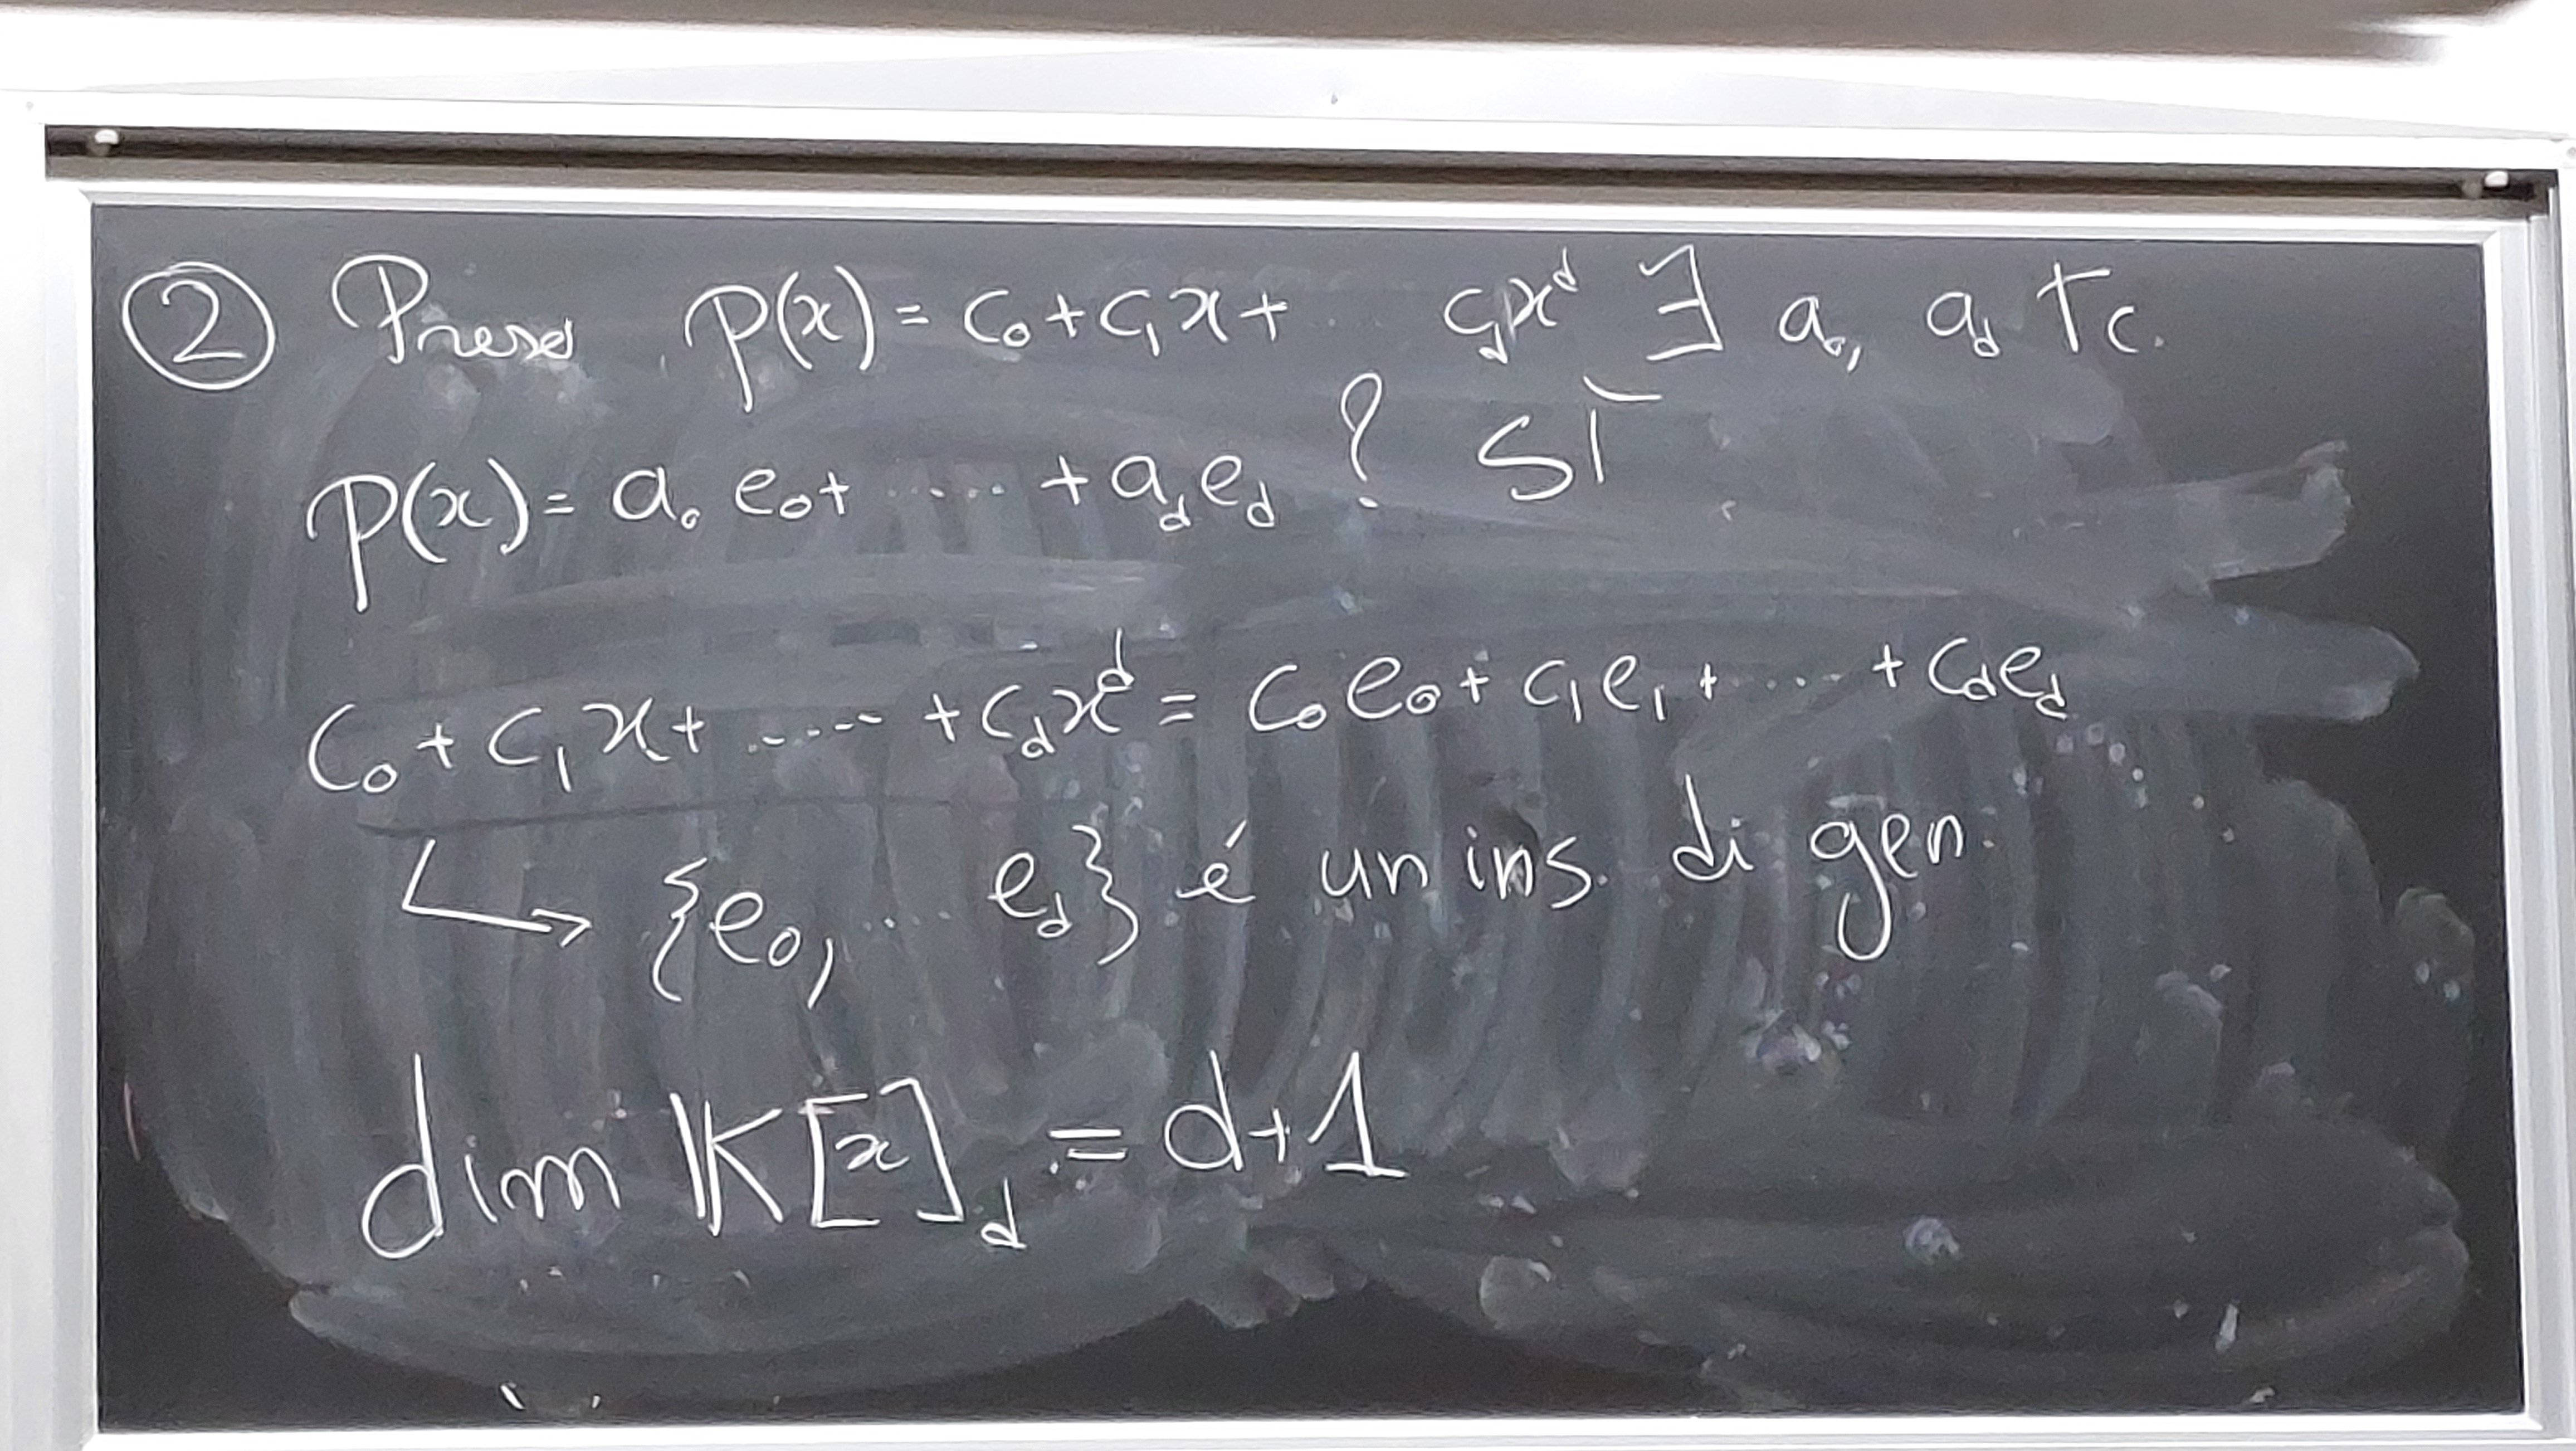 ② Preso p(x) = c₀ + c₁x + ... c_d x^d ∃ a₀, a_d t.c.
p(x) = a₀ e₀ + ..... + a_d e_d ? SÌ
c₀ + c₁x + ...... + c_d x^d = c₀e₀ + c₁e₁ + ..... + c_d e_d
↳ {e₀, ... e_d} é un ins. di gen.
dim 𝕂[x]_d = d+1